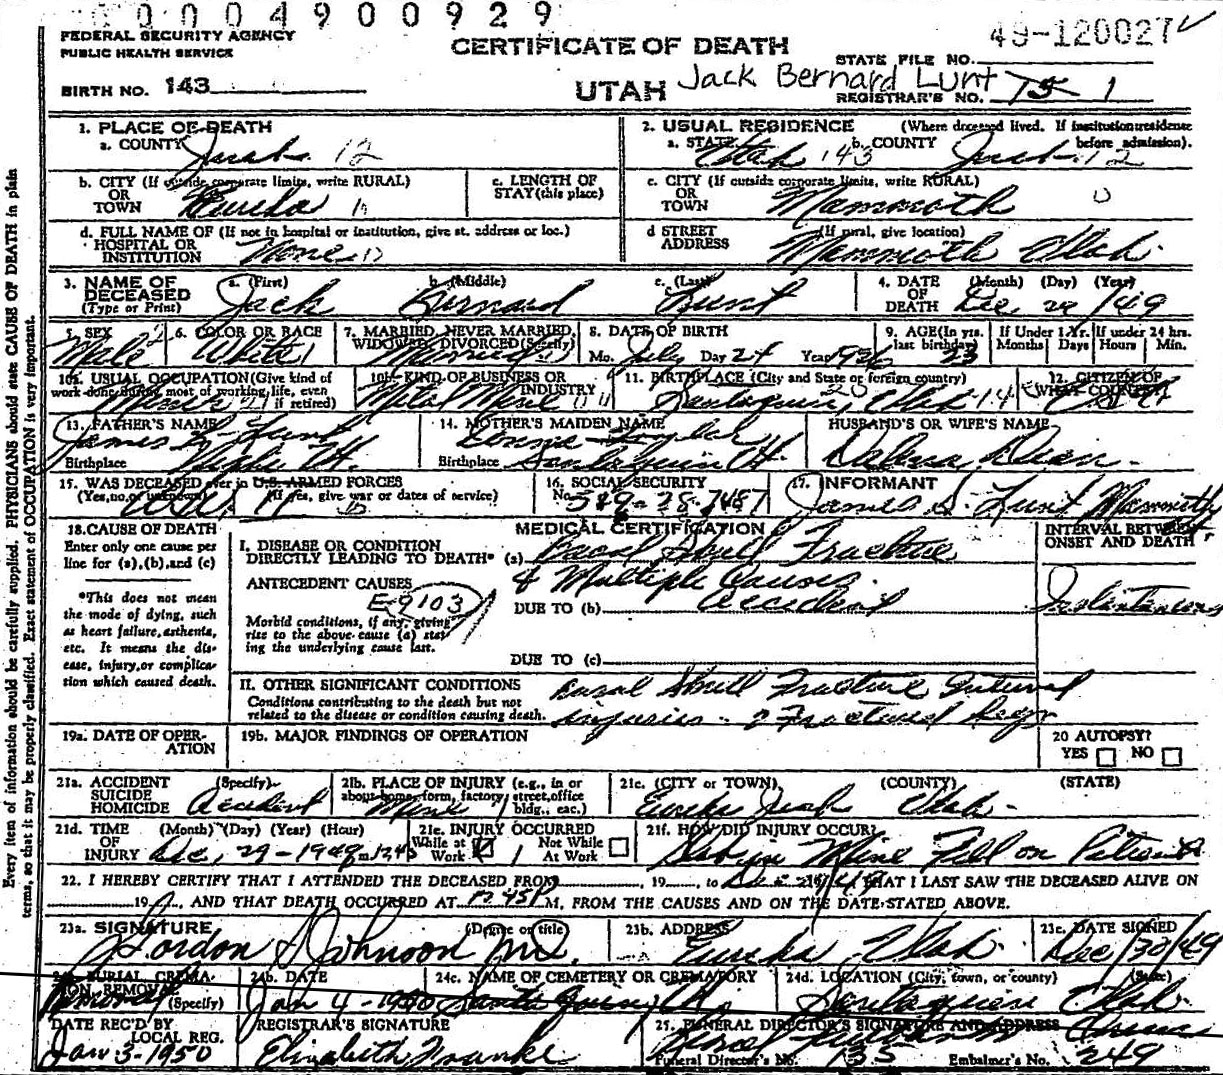 00004900929
FEDERAL SECURITY AGENCY
PUBLIC HEALTH SERVICE
CERTIFICATE OF DEATH
49-120027
STATE FILE NO.
BIRTH NO. 143
UTAH Jack Bernard Lunt
REGISTRAR'S NO. 75 1
Every item of information should be carefully supplied. PHYSICIANS should state CAUSE OF DEATH in plain
terms, so that it may be properly classified. Exact statement of OCCUPATION is very important.
1. PLACE OF DEATH
a. COUNTY Juab 12
2. USUAL RESIDENCE (Where deceased lived. If institution:residence before admission).
a. STATE Utah 143 b. COUNTY Juab 12
b. CITY (If outside corporate limits, write RURAL)
OR TOWN Eureka
c. LENGTH OF STAY (this place)
c. CITY (If outside corporate limits, write RURAL)
OR TOWN Mammoth 0
d. FULL NAME OF (If not in hospital or institution, give st. address or loc.)
HOSPITAL OR INSTITUTION None
d STREET ADDRESS (If rural, give location)
Mammoth Utah
3. NAME OF DECEASED (Type or Print)
a. (First) Jack
b. (Middle) Bernard
c. (Last) Lunt
4. DATE OF DEATH (Month) (Day) (Year)
Dec 29/49
5. SEX Male
6. COLOR OR RACE White
7. MARRIED, NEVER MARRIED, WIDOWED, DIVORCED (Specify) Married
8. DATE OF BIRTH
Mo. July Day 24 Year 926
9. AGE (In yrs. last birthday) 23
If Under 1 Yr. Months Days
If under 24 hrs. Hours Min.
10a. USUAL OCCUPATION (Give kind of work done during most of working life, even if retired) Miner
10b. KIND OF BUSINESS OR INDUSTRY Metal Mine
11. BIRTHPLACE (City and State or foreign country)
Santaquin, Utah 14
12. CITIZEN OF WHAT COUNTRY?
13. FATHER'S NAME
James S. Lunt
Birthplace Nephi Ut.
14. MOTHER'S MAIDEN NAME
Taylor
Birthplace Santaquin Ut
HUSBAND'S OR WIFE'S NAME
Dean
15. WAS DECEASED ever in U.S. ARMED FORCES
(Yes, no, or unknown) (If yes, give war or dates of service)
16. SOCIAL SECURITY
No. 529-28-7487
17. INFORMANT
James S. Lunt Mammoth
18. CAUSE OF DEATH
Enter only one cause per line for (a), (b), and (c)
*This does not mean the mode of dying, such as heart failure, asthenia, etc. It means the disease, injury, or complication which caused death.
MEDICAL CERTIFICATION
I. DISEASE OR CONDITION DIRECTLY LEADING TO DEATH* (a) Basal Skull Fracture
& Multiple Causes
ANTECEDENT CAUSES
E-9103
DUE TO (b) accident
Morbid conditions, if any, giving rise to the above cause (a) stating the underlying cause last.
DUE TO (c)
INTERVAL BETWEEN ONSET AND DEATH
Instantaneous
II. OTHER SIGNIFICANT CONDITIONS
Conditions contributing to the death but not related to the disease or condition causing death.
Basal Skull Fracture Internal
injuries - 2 Fractured Legs
19a. DATE OF OPERATION
19b. MAJOR FINDINGS OF OPERATION
20 AUTOPSY?
YES NO
21a. ACCIDENT SUICIDE HOMICIDE (Specify) Accident
21b. PLACE OF INJURY (e.g., in or about home, form, factory, street, office bldg., eac.) Mine
21c. (CITY or TOWN) (COUNTY) (STATE)
Eureka Juab Utah
21d. TIME OF INJURY (Month) (Day) (Year) (Hour)
Dec, 29-1949 m. 1245
21e. INJURY OCCURRED
While at Work Not While At Work
21f. HOW DID INJURY OCCUR?
Mine Fell on Patient
22. I HEREBY CERTIFY THAT I ATTENDED THE DECEASED FROM , 19 , to Dec 29/49 THAT I LAST SAW THE DECEASED ALIVE ON
19 , AND THAT DEATH OCCURRED AT M, FROM THE CAUSES AND ON THE DATE STATED ABOVE.
23a. SIGNATURE (Degree or title)
Gordon S Johnson MD.
23b. ADDRESS
Eureka Utah
23c. DATE SIGNED
Dec/30/49
24a. BURIAL, CREMATION, REMOVAL (Specify) Removal
24b. DATE
Jan 4-1950
24c. NAME OF CEMETERY OR CREMATORY
24d. LOCATION (City, town, or county) (State)
Santaquin Utah
DATE REC'D BY LOCAL REG.
Jan 3-1950
REGISTRAR'S SIGNATURE
Elizabeth Franke
25. FUNERAL DIRECTOR'S SIGNATURE AND ADDRESS
Funeral Director's No. 135 Embalmer's No. 249